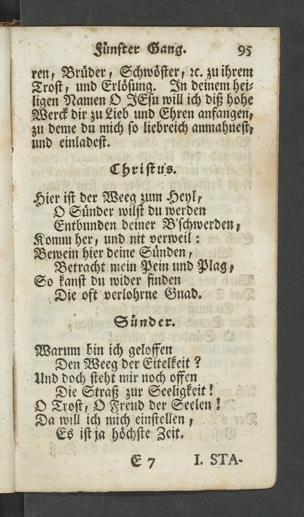 Fünfter Gang. 95
ren, Brüder, Schwöster, ꝛc. zu ihrem
Trost, und Erlösung. In deinem hei-
ligen Namen O JEsu will ich diß hohe
Werck dir zu Lieb und Ehren anfangen,
zu deme du mich so liebreich anmahnest,
und einladest.
Christus.
Hier ist der Weeg zum Heyl,
O Sünder wilst du werden
Entbunden deiner B'schwerden,
Komm her, und nit verweil:
Bewein hier deine Sünden,
Betracht mein Pein und Plag,
So kanst du wider finden
Die oft verlohrne Gnad.
Sünder.
Warum bin ich geloffen
Den Weeg der Eitelkeit?
Und doch steht mir noch offen
Die Straß zur Seeligkeit!
O Trost, O Freud der Seelen!
Da will ich mich einstellen,
Es ist ja höchste Zeit.
E 7 I. STA-